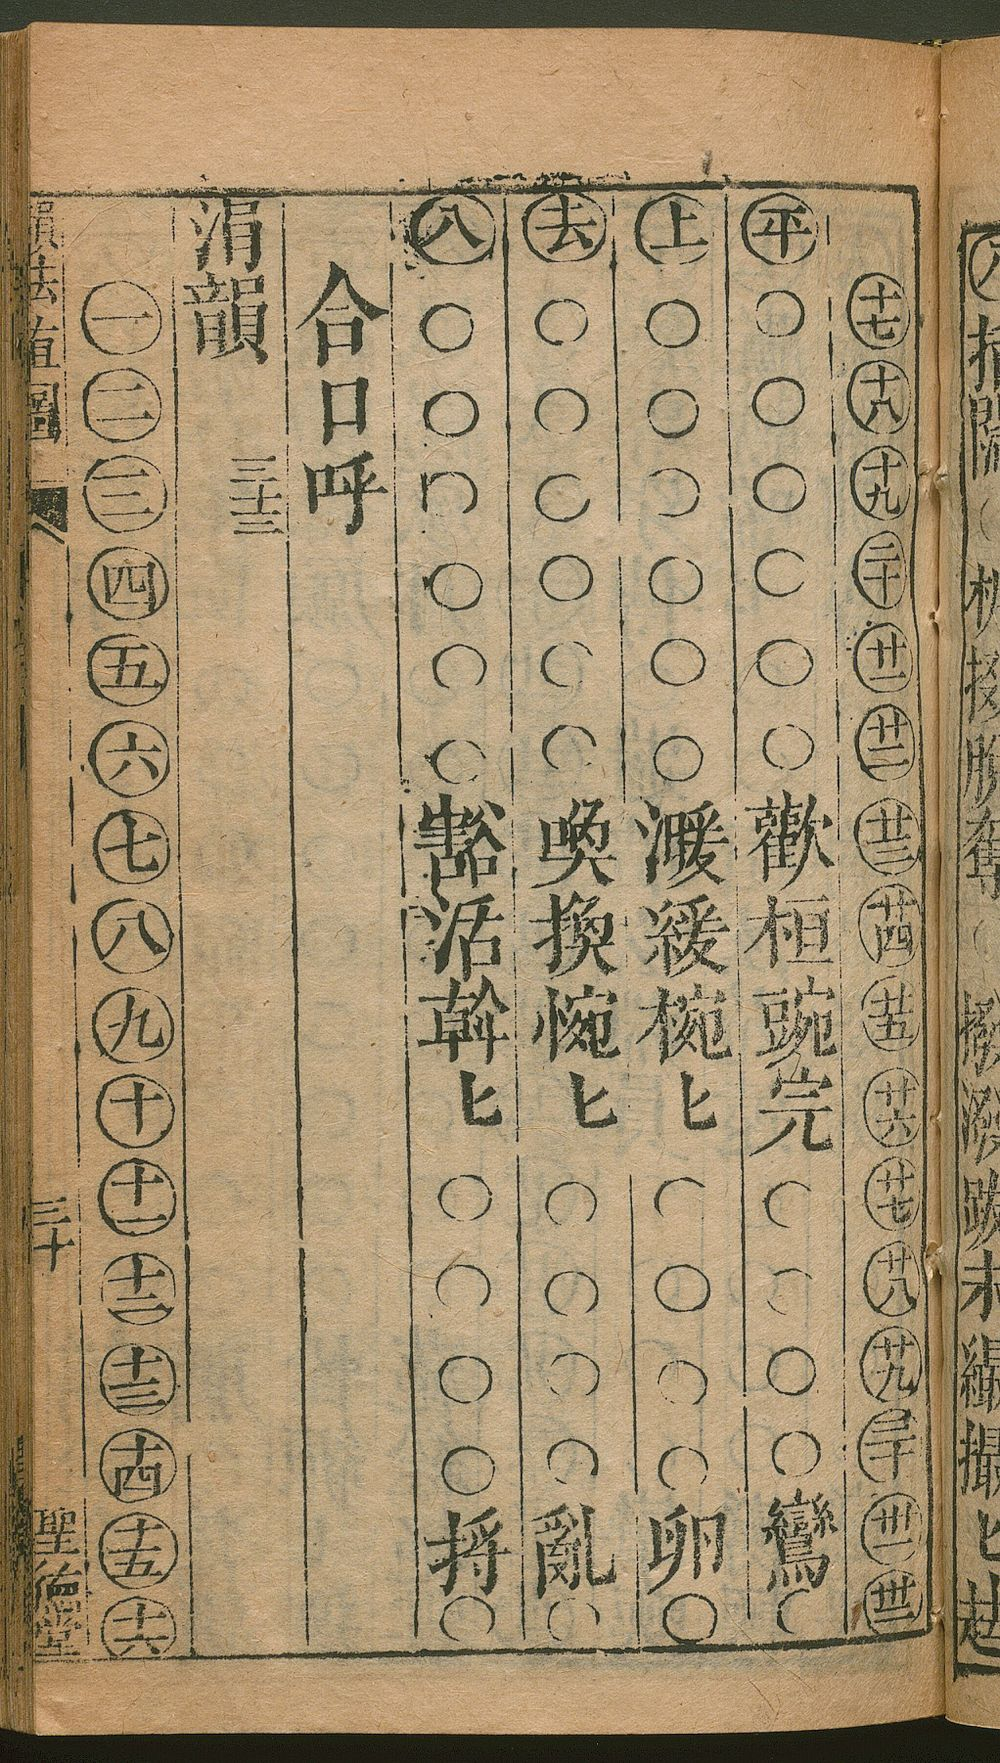 十七 十八 十九 二十 廿一 廿二 廿三 廿四 廿五 廿六 廿七 廿八 廿九 三十 卅一 卅二
平 ○ ○ ○ ○ ○ ○ 歡 桓 豌 完 ○ ○ ○ ○ 鸞 ○
上 ○ ○ ○ ○ ○ ○ 澣 緩 椀 ヒ ○ ○ ○ ○ 卵 ○
去 ○ ○ ○ ○ ○ ○ 喚 換 惋 ヒ ○ ○ ○ ○ 亂 ○
入 ○ ○ ○ ○ ○ ○ 豁 活 斡 ヒ ○ ○ ○ ○ 捋 ○
合口呼
涓韻 三十三
一 二 三 四 五 六 七 八 九 十 十一 十二 十三 十四 十五 十六
韻法直圖 三十 聖德堂